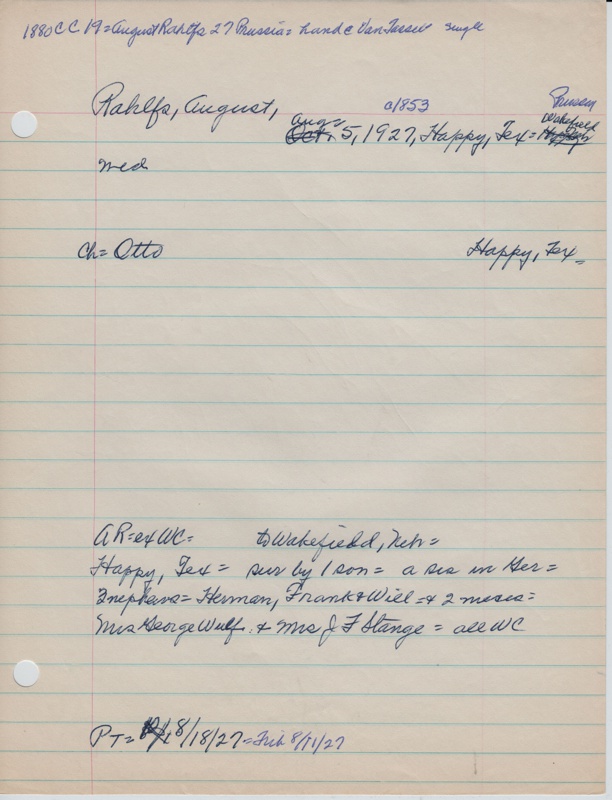 1880 CC 19 = August Rahlfs 27 Prussia = hand c Van Tassel single
Rahlfs, August, c/1853
Aug = Wakefield
Oct. 5, 1927, Happy, Tex =
med
Ch = Otto Happy, Tex =
AR = ex WC = to Wakefield, Neb =
Happy, Tex = sur by 1 son = a sis in Ger =
3 nephews = Herman, Frank & Will = & 2 nieces =
Mrs George Wulf. & Mrs J F Stange = all WC
PT = 8/18/27 = Trib 8/11/27